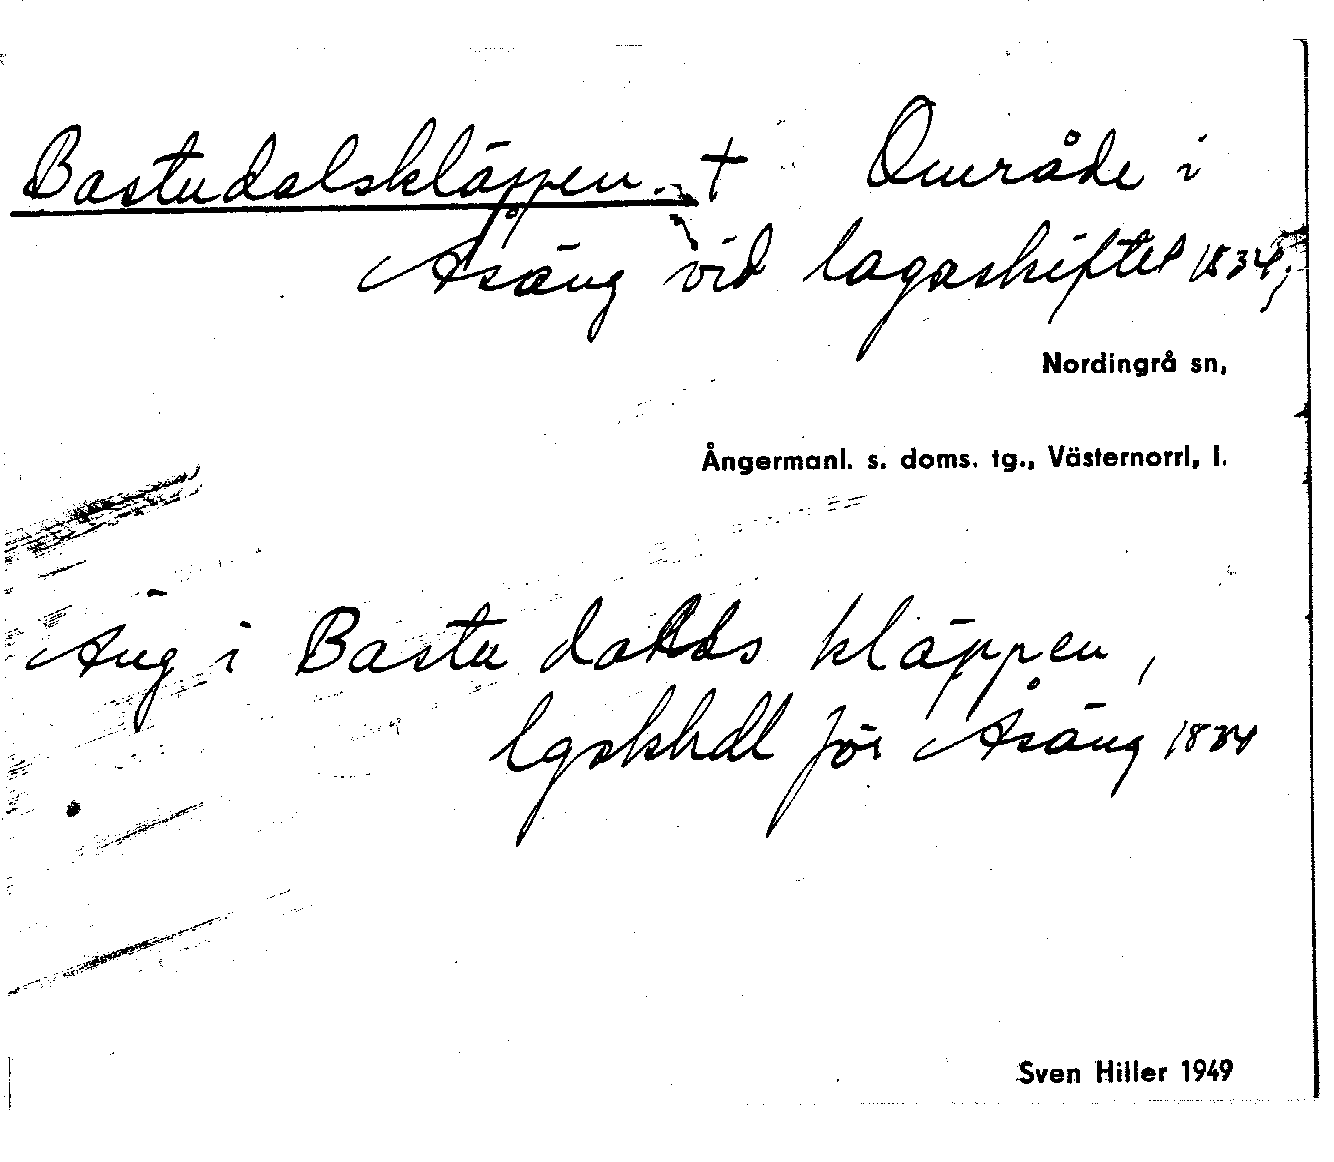 Bastudalskläppen. + Område i
Åsäng vid lagaskiftet 1834,
Nordingrå sn,
Ångermanl. s. doms. tg., Västernorrl, l.
Äng i Bastu dahls kläppen,
lgskhdl för Åsäng 1834
Sven Hiller 1949